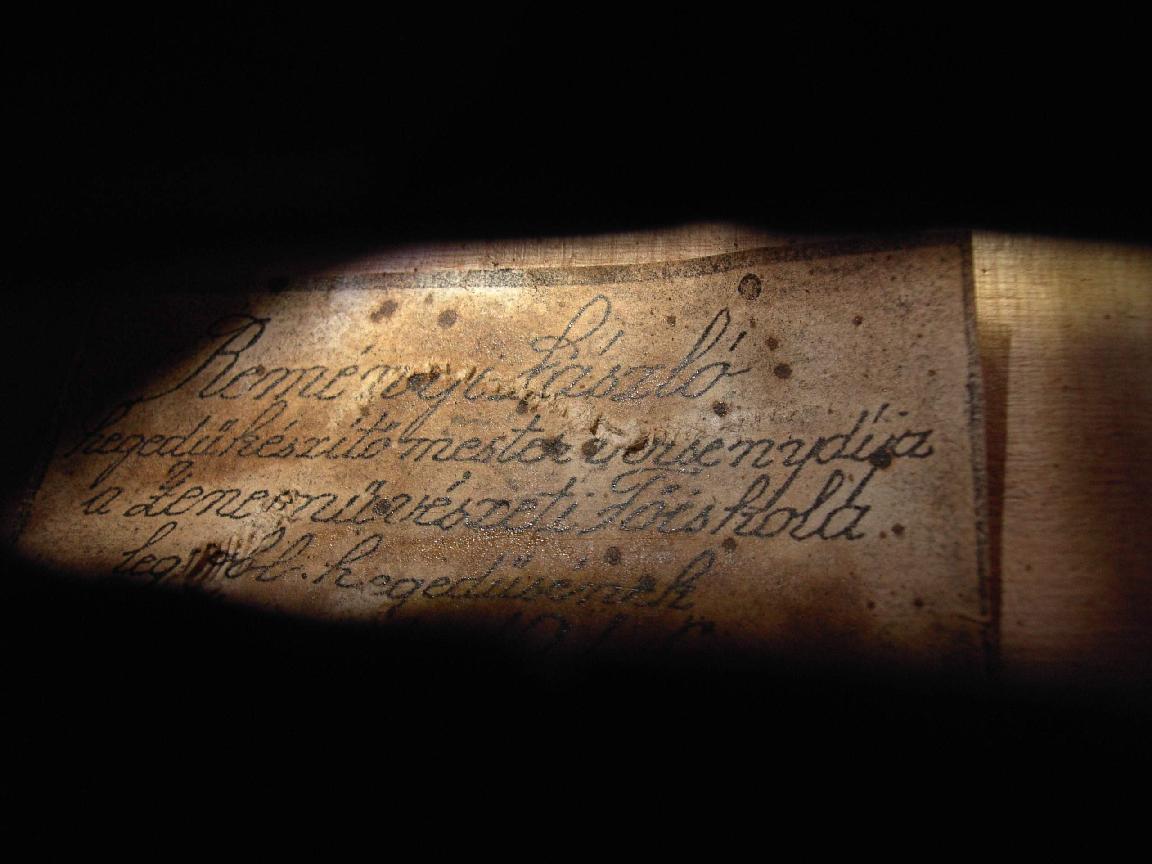 Reményi László
hegedűkészítő mester versenydíja
a Zeneművészeti Főiskola
legjobb hegedűsének